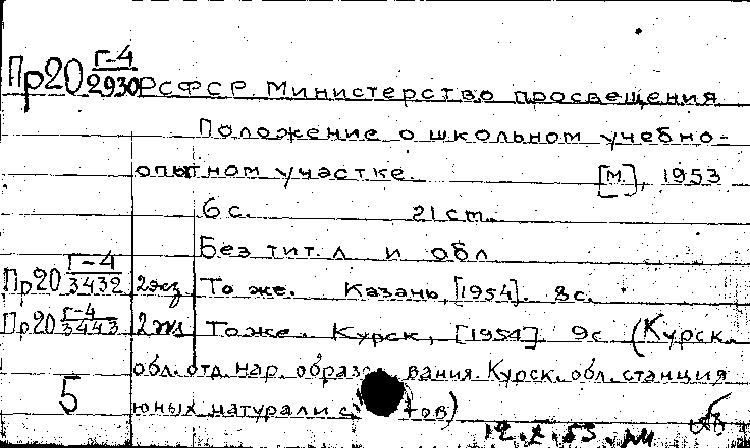 Пр20 Г-4/2930 РСФСР Министерство просвещения
Положение о школьном учебно-
опытном участке. [М.], 1953
6 с. 21 cm.
Без тит. л и обл
Пр20 Г-4/3432 2экз То же. Казань, [1954]. 8 с.
Пр20 Г-4/3443 2экз То же. Курск, [1954]. 9 с (Курск.
обл. отд. нар. образования. Курск. обл. станция
5 юных натуралистов)